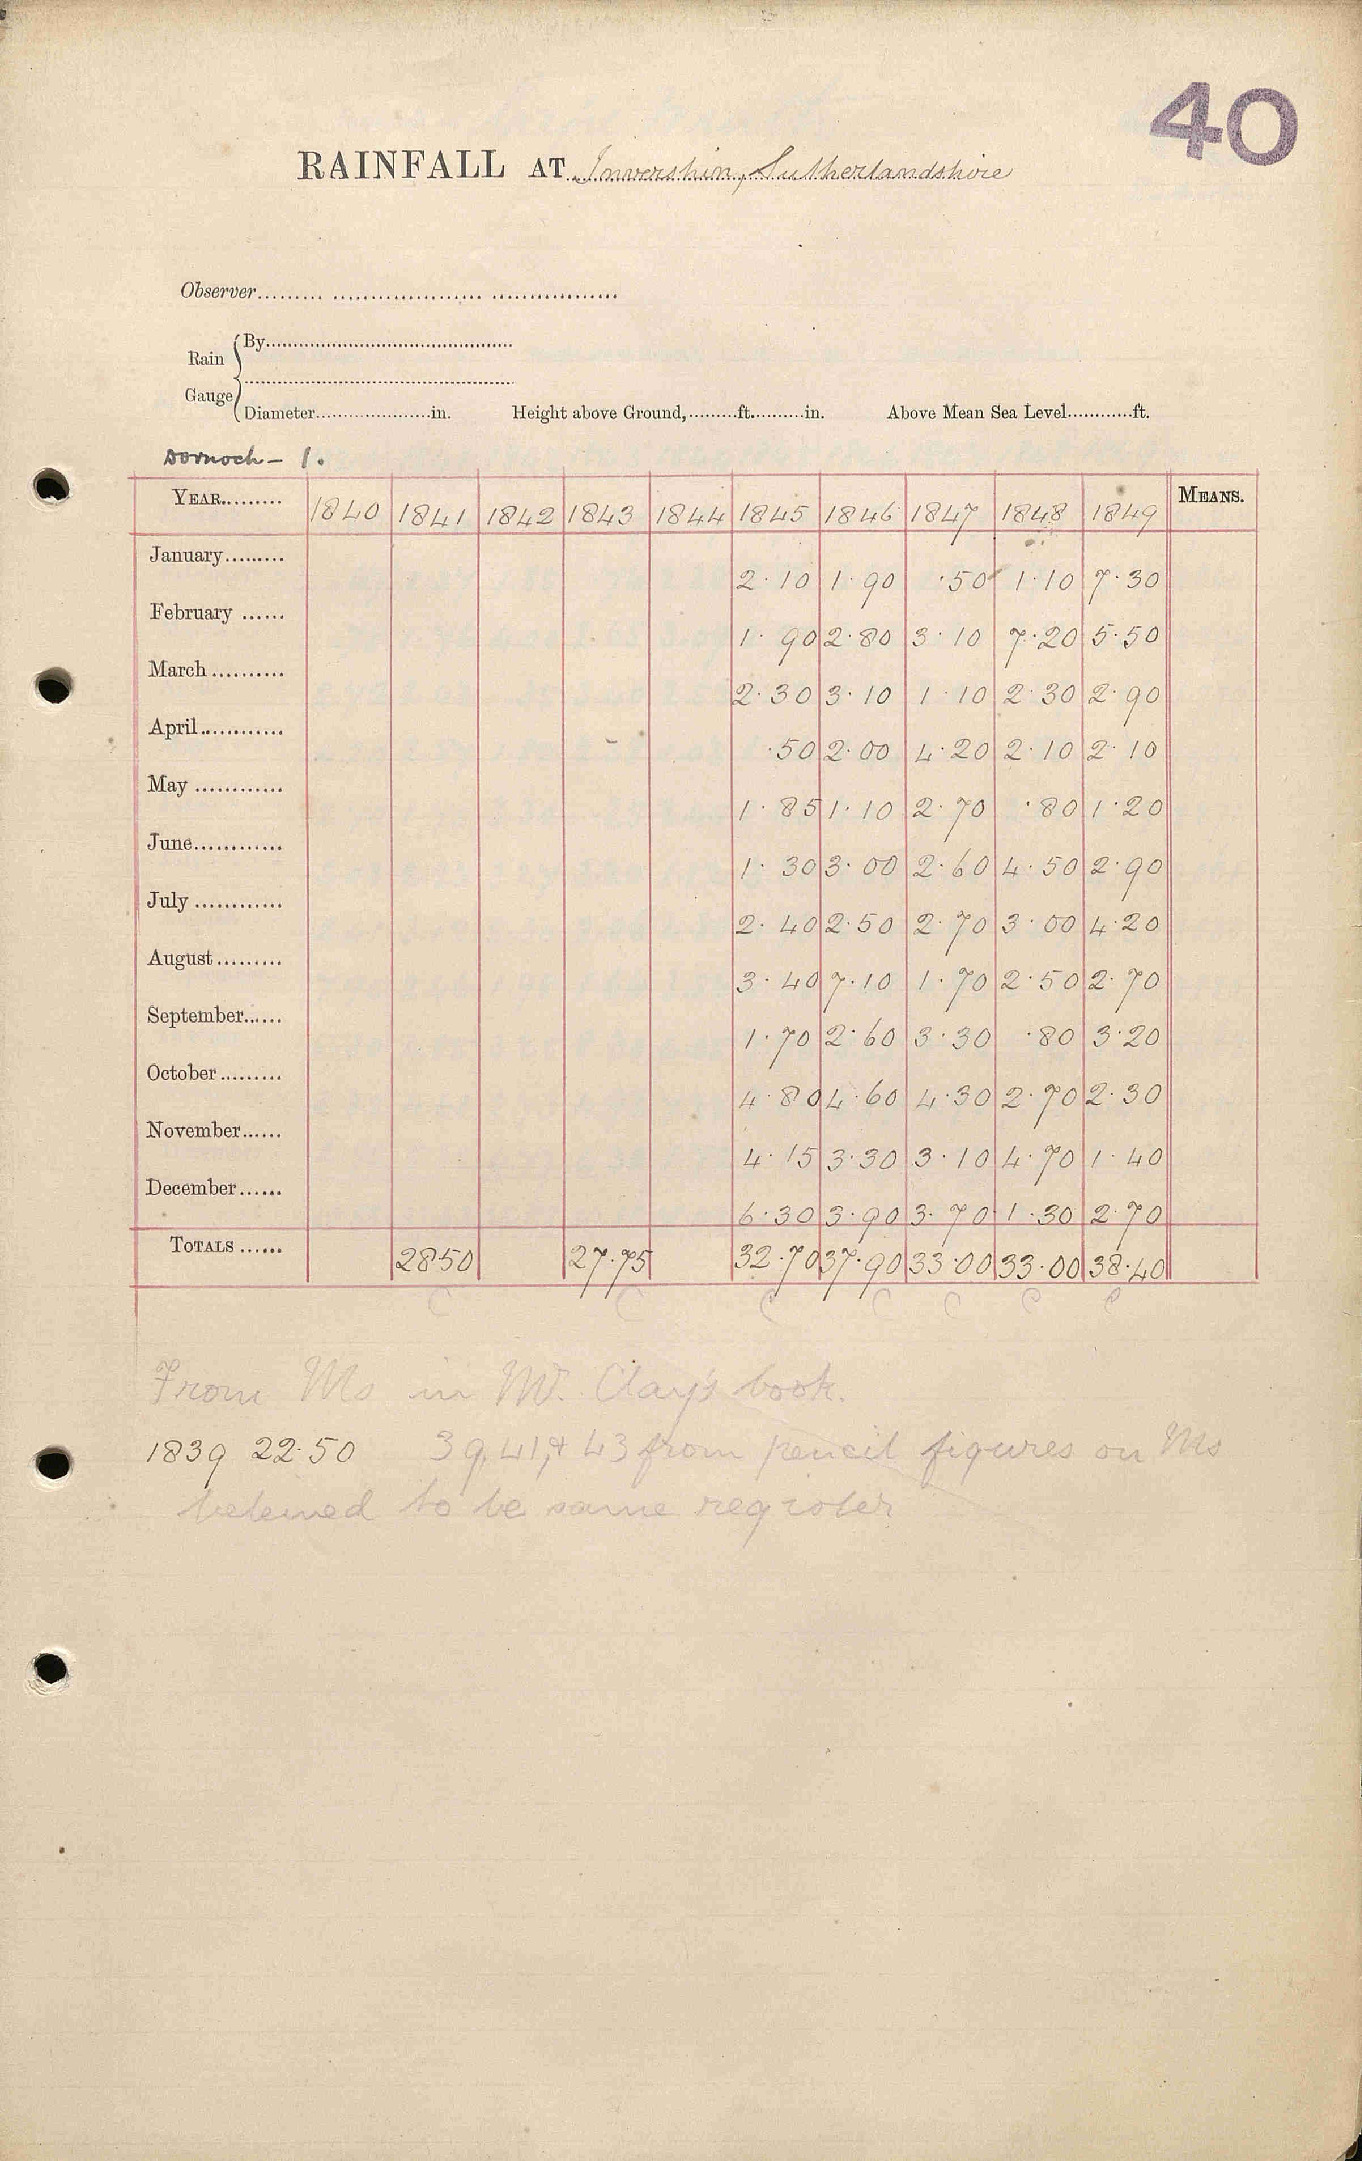 40
RAINFALL AT Invershin, Sutherlandshire
Observer
Rain Gauge { By
Diameter in. Height above Ground, ft. in. Above Mean Sea Level ft.
Dornoch - 1.
YEAR 1840 1841 1842 1843 1844 1845 1846 1847 1848 1849 MEANS.
January 2.10 1.90 .50 1.10 7.30
February 1.90 2.80 3.10 7.20 5.50
March 2.30 3.10 1.10 2.30 2.90
April .50 2.00 4.20 2.10 2.10
May 1.85 1.10 2.70 .80 1.20
June 1.30 3.00 2.60 4.50 2.90
July 2.40 2.50 2.70 3.00 4.20
August 3.40 7.10 1.70 2.50 2.70
September 1.70 2.60 3.30 .80 3.20
October 4.80 4.60 4.30 2.70 2.30
November 4.15 3.30 3.10 4.70 1.40
December 6.30 3.90 3.70 1.30 2.70
TOTALS 28.50 27.75 32.70 37.90 33.00 33.00 38.40
C C C C C C C
From Ms in Mr. Clay's book.
1839 22.50 39, 41, & 43 from pencil figures on Ms
beleived to be same register